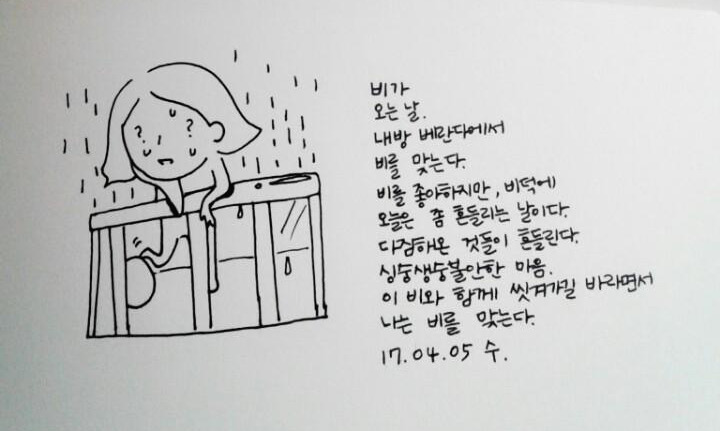 비가
오는 날.
내방 베란다에서
비를 맞는다.
비를 좋아하지만, 비덕에
오늘은 좀 흔들리는 날이다.
다짐해온 것들이 흔들린다.
싱숭생숭불안한 마음.
이 비와 함께 씻겨가길 바라면서
나는 비를 맞는다.
17.04.05 수.